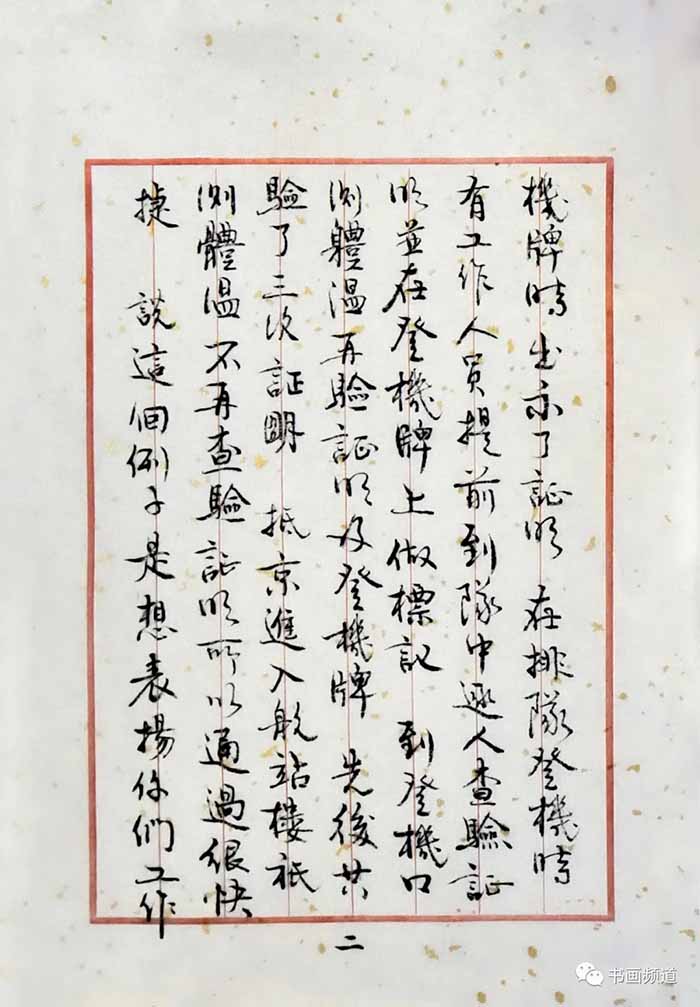 機牌時出示了証明 在排隊登機時
有工作人員提前到隊中逐人查驗証
明並在登機牌上做標記 到登機口
測體溫再驗証明及登機牌 先後共
驗了三次証明 抵京進入航站楼祇
測體溫不再查驗証明所以通過很快
捷 說這個例子是想表揚你們工作
二
书画频道